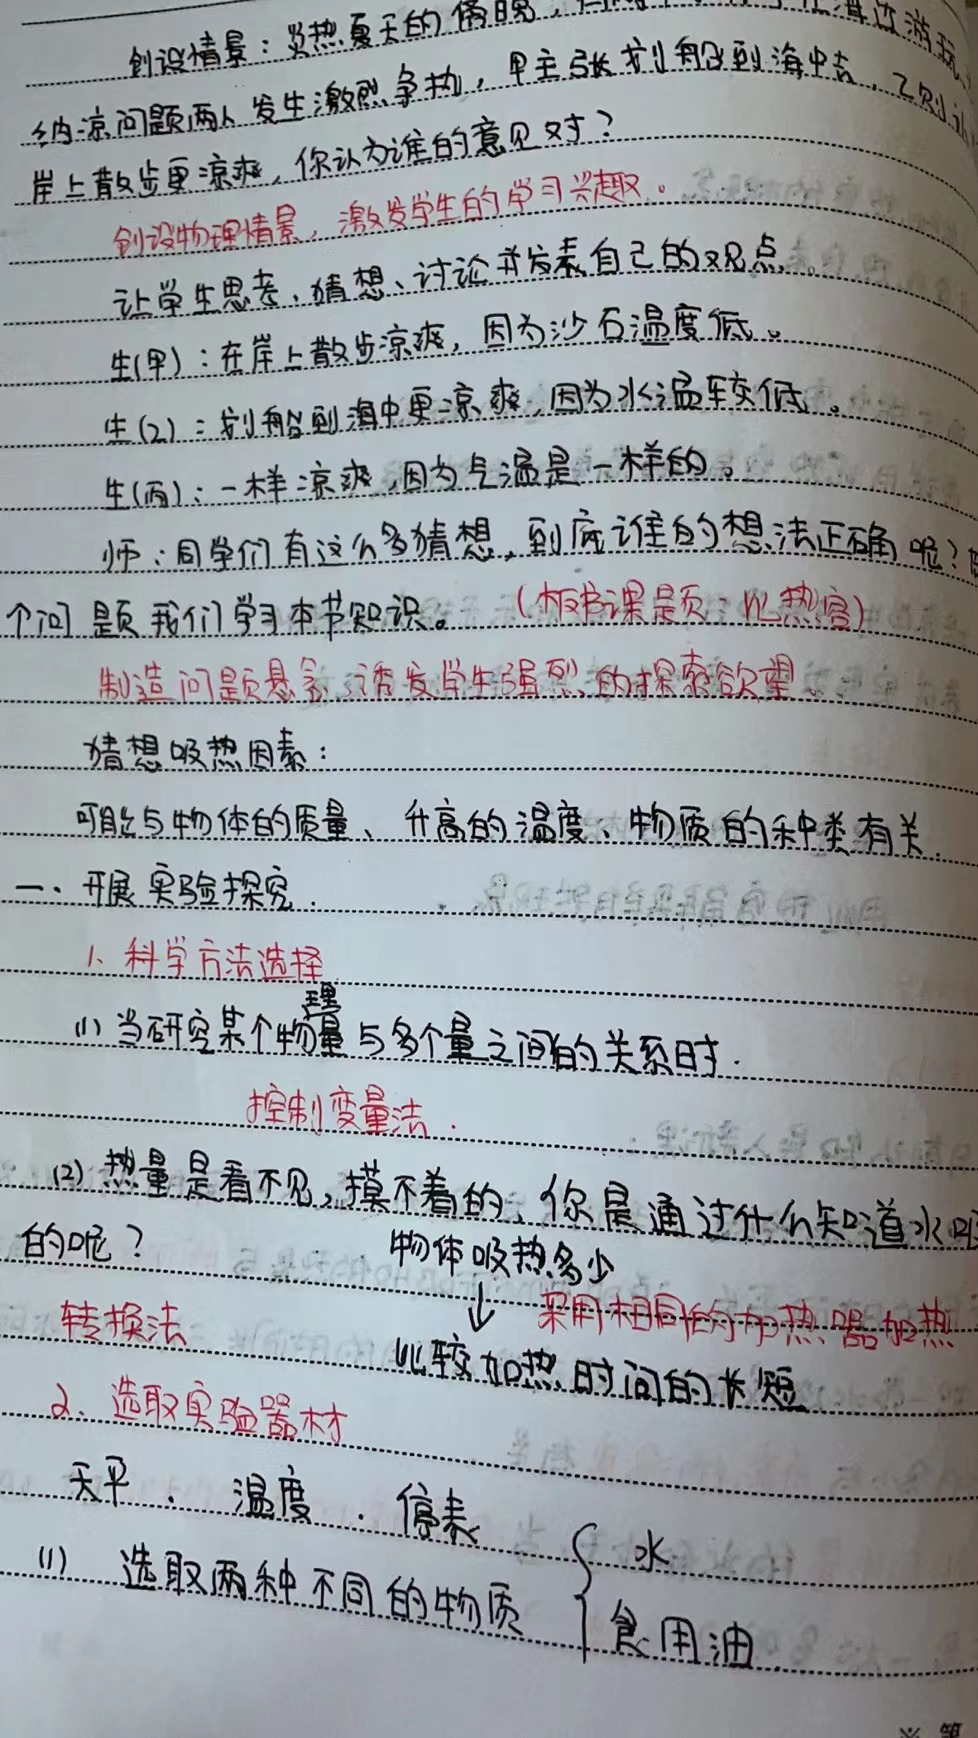 创设情景：炎热夏天的傍晚，
纳凉问题两人发生激烈争执，甲主张划船到海中去，乙则认
岸上散步更凉爽，你认为谁的意见对？
创设物理情景，激发学生的学习兴趣。
让学生思考、猜想、讨论并发表自己的观点。
生(甲)：在岸上散步凉爽，因为沙石温度低。
生(乙)：划船到海中更凉爽，因为水温较低。
生(丙)：一样凉爽，因为气温是一样的。
师：同学们有这么多猜想，到底谁的想法正确呢？
个问题我们学习本节知识。（板书课题：比热容）
制造问题悬念，诱发学生强烈的探索欲望。
猜想吸热因素：
可能与物体的质量、升高的温度、物质的种类有关.
一.开展实验探究.
1、科学方法选择
(1)当研究某个物理量与多个量之间的关系时.
控制变量法.
(2)热量是看不见,摸不着的,你是通过什么知道水吸
的呢？
物体吸热多少
转换法
↓ 采用相同的加热器加热
比较加热时间的长短
2、选取实验器材
天平. 温度. 停表
(1) 选取两种不同的物质 { 水
食用油
※ 第